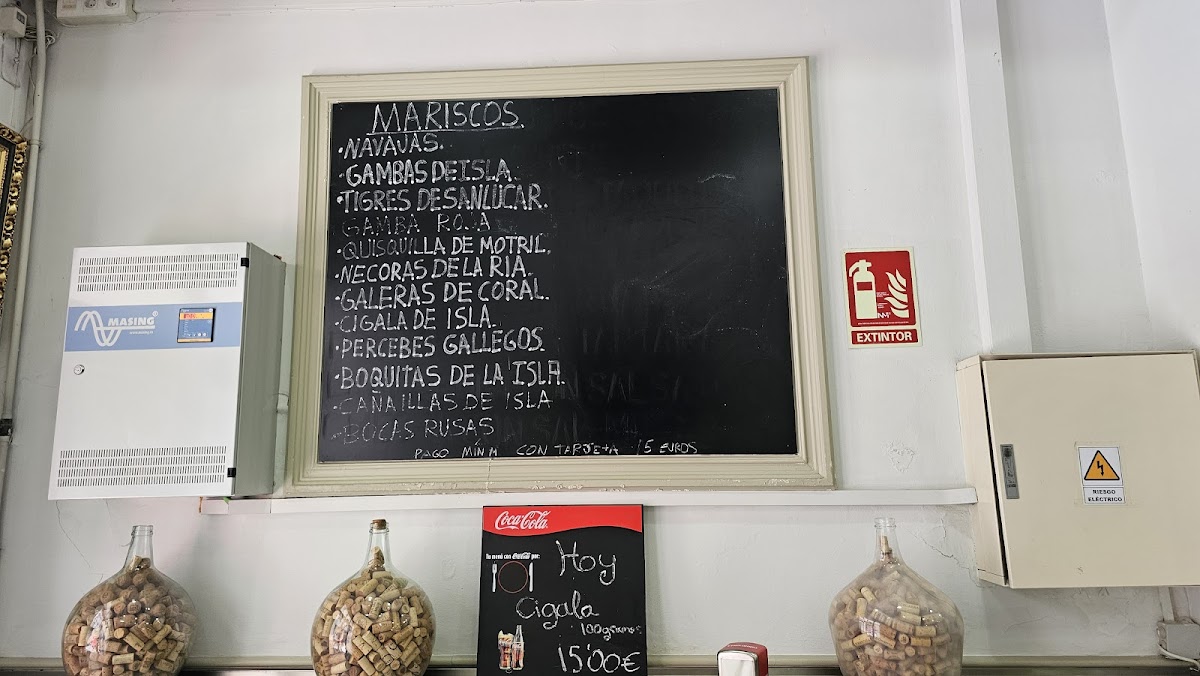 MARISCOS
·NAVAJAS.
·GAMBAS DE ISLA.
·TIGRES DE SANLÚCAR.
GAMBA ROJA
·QUISQUILLA DE MOTRIL.
·NECORAS DE LA RIA.
·GALERAS DE CORAL.
·CIGALA DE ISLA.
·PERCEBES GALLEGOS.
·BOQUITAS DE LA ISLA.
·CAÑAILLAS DE ISLA
·BOCAS RUSAS
PAGO MÍNM CON TARJETA 15 EUROS
MASING
EXTINTOR
RIESGO
ELÉCTRICO
Coca-Cola
Tu menú con Coca-Cola por:
Hoy
Cigala
100gramos
15'00€